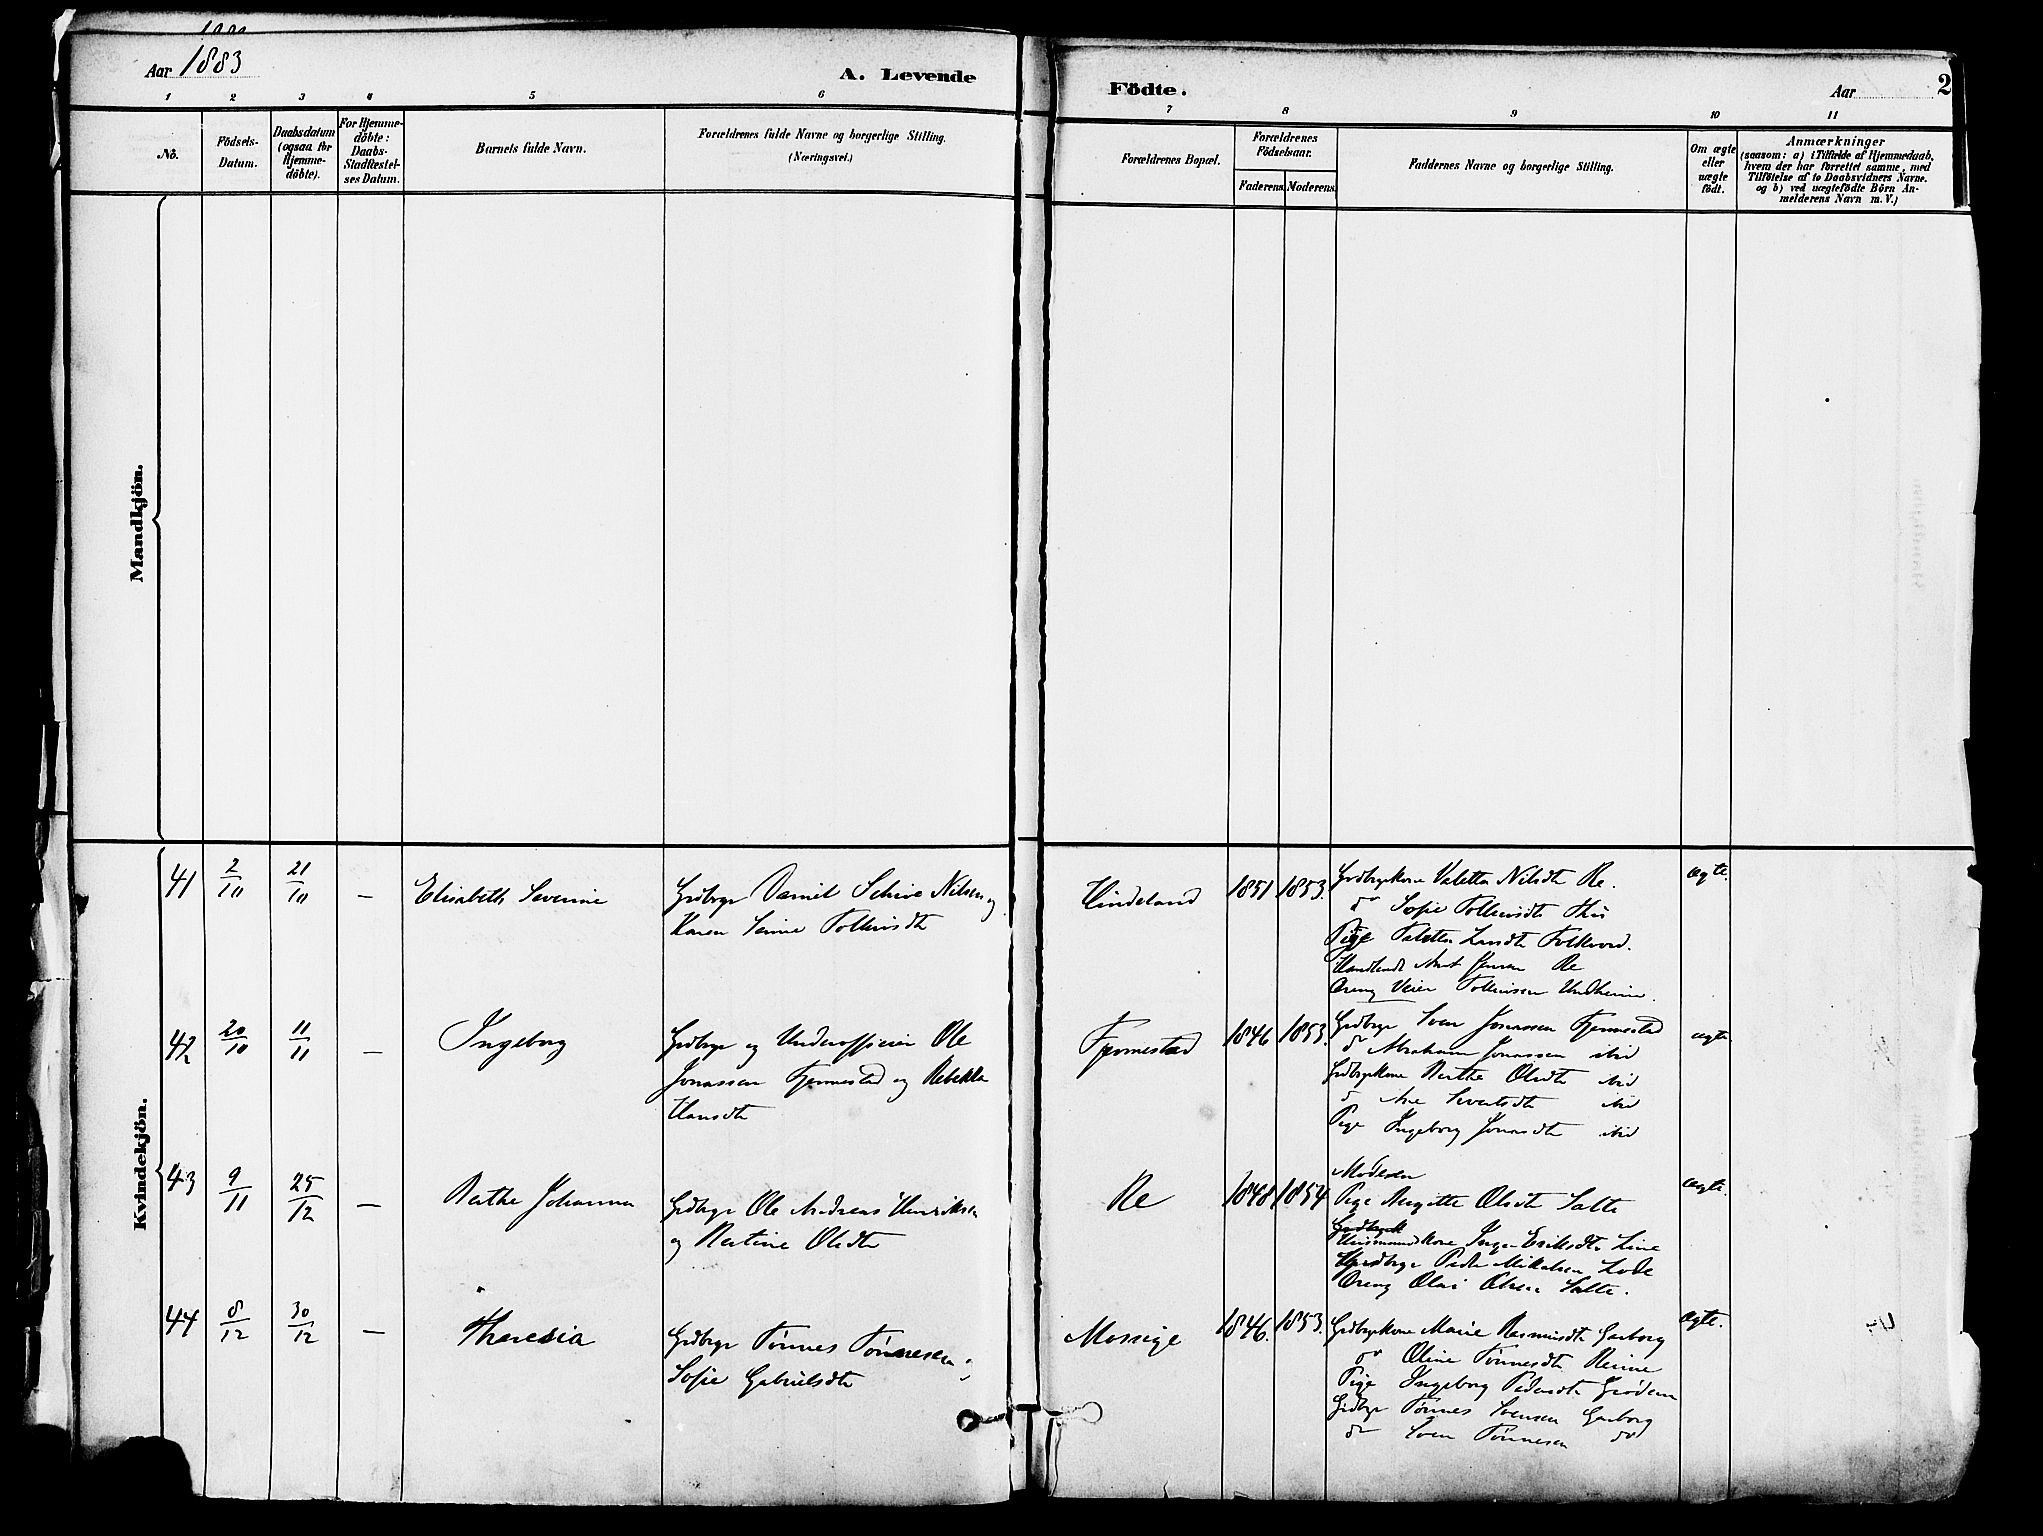 Aar 1883
A. Levende
Födte.
Aar
2
1 2 3 4 5 6 7 8 9 10 11
No.
Födsels-
Datum.
Daabsdatum
(ogsaa for
Hjemme-
döbte).
For Hjemme-
döbte:
Daabs-
Stadfæstel-
ses Datum.
Barnets fulde Navn.
Forældrenes fulde Navne og borgerlige Stilling.
(Næringsvei.)
Forældrenes Bopæl.
Forældrenes
Födselsaar.
Faderens.
Moderens.
Faddernes Navne og borgerlige Stilling.
Om ægte
eller
uægte
födt.
Anmærkninger
(saasom: a) i Tilfælde af Hjemmedaab,
hvem der har forrettet samme, med
Tilföielse af to Daabsvidners Navne.
og b) ved uægtefödte Börn An-
melderens Navn m.V.)
Mandkjön.
Kvindekjön.
41 2/10 21/10 — Elisabeth Severine
Grdbrgr Daniel Schive Nilsen og
Karen Serine Tollivsdtr
Hindeland 1851 1853.
Grdbrgkone Valetta Nilsdtr Re.
do Sofie Tollivsdtr Thu
Pige Taletta Larsdtr Folkvord.
Handlende Jensen Re
Dreng Veier Tollivsen Undheim.
ægte.
42 20/10 11/11 — Ingeborg
Grdbrgr og Underofficier Ole
Jonassen Fjermestad og Rebekka
Hansdtr
Fjermestad 1846 1853.
Grdbrgr Sven Jonassen Fjermestad
do Abraham Jonassen ibid
Grdbrgkone Berthe Olsdtr ibid
do Ane Sivertsdtr ibid
Pige Ingeborg Jonasdtr ibid
ægte.
43 9/11 25/12 — Berthe Johanna
Grdbrgr Ole Andreas Henriksen
og Bertine Olsdtr
Re 1848 1854
Moderen
Pige Birgitte Olsdtr Salte
Husmandskone Inger Eriksdtr Line
Grdbrgr Peder Mikalsen Lode
Dreng Olai Olsen Salte.
ægte.
44 8/12 30/12 — Theresia
Grdbrgr Tønnes Tønnesen og
Sofie Gabrielsdtr
Mossige 1846. 1853.
Grdbrgkone Marie Rasmusdtr Garborg
do Oline Tønnesdtr Reime
Pige Ingeborg Pedersdtr Grødem
Grdbrgr Tønnes Svensen Garborg
do Sven Tønnesen do
ægte.